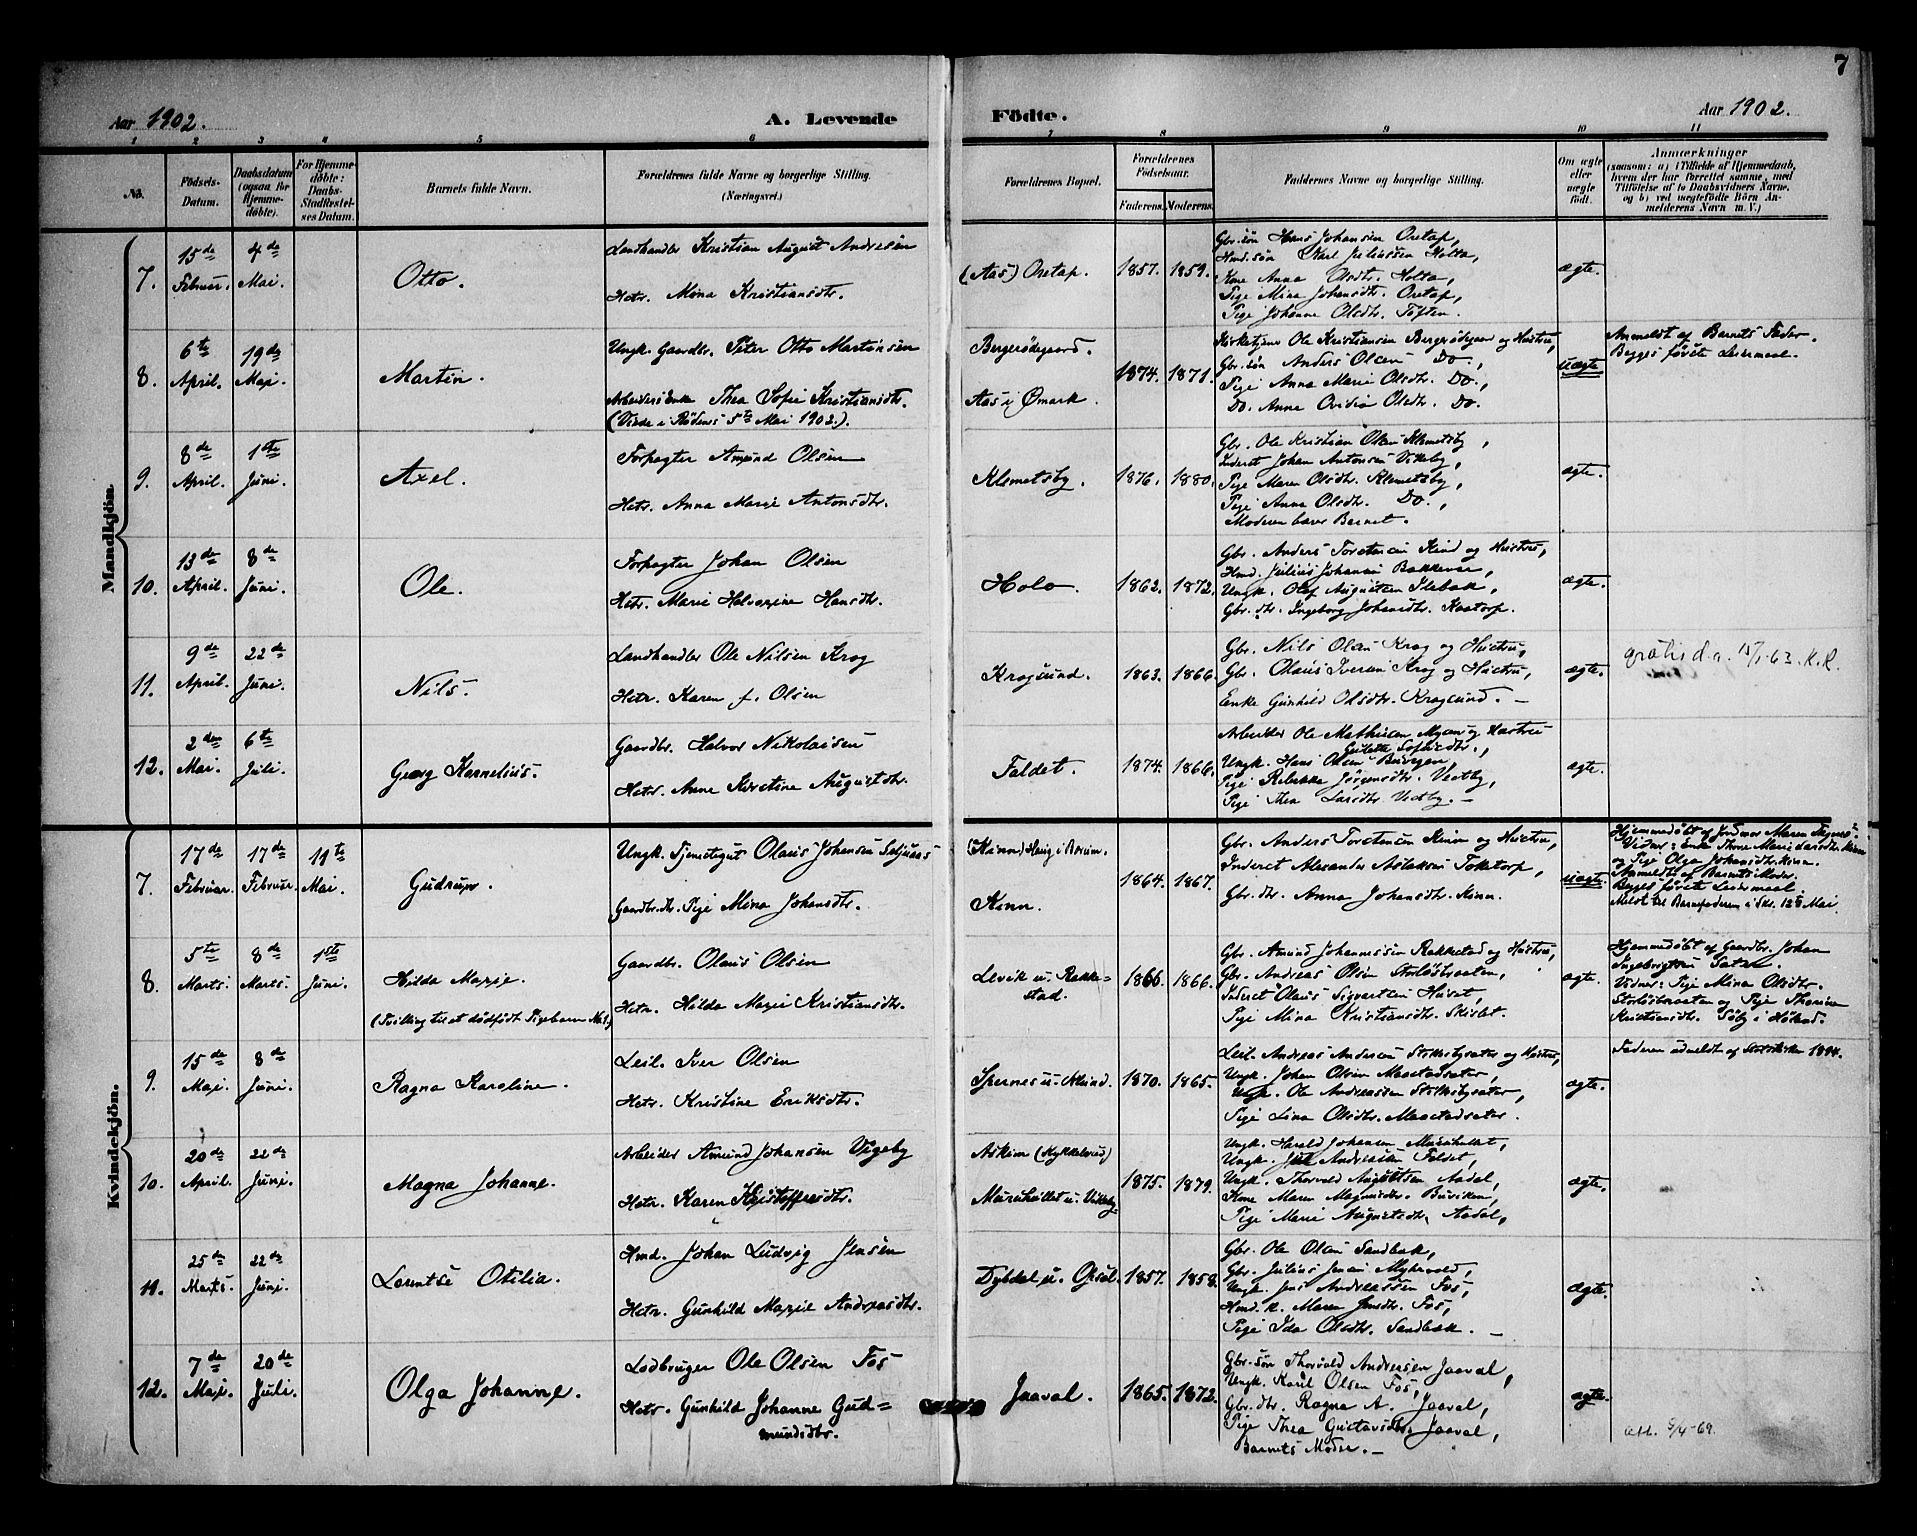 7
Aar 1902.
A. Levende
Födte.
Aar 1902.
1 2 3 4 5 6 7 8 9 10 11
No.
Födsels-
Datum.
Daabsdatum
(ogsaa for
Hjemme-
döbte).
For Hjemme-
döbte:
Daabs-
Stadfæstel-
ses Datum.
Barnets fulde Navn.
Forældrenes fulde Navne og borgerlige Stilling.
(Næringsvei.)
Forældrenes Bopæl.
Forældrenes
Födselsaar.
Faderens. Moderens.
Faddernes Navne og borgerlige Stilling.
Om ægte
eller
uægte
födt.
Anmærkninger
(saasom: a) i Tilfælde af Hjemmedaab,
hvem der har forrettet samme, med
Tilföielse af to Daabsvidners Navne,
og b) ved uægtefödte Börn An-
melderens Navn m. V.)
Mandkjön
7.
15de
Februar.
4de
Mai.
Otto.
Landhandler Kristian August Andresen
Hstr. Mina Kristiansdtr.
(Aas) Oretap.
1857. 1859.
Gbr.søn Hans Johansen Oretap,
Hmd.søn Karl Juliussen Holta,
Kone Anna Olsdtr. Holta,
Pige Mina Johansdtr. Oretap,
Pige Johanne Olsdtr. Toften.
ægte.
8.
6te
April.
19de
Mai.
Martin.
Ungk. Gaardbr. Peter Otto Martinsen
Arbeiders Enke Thea Sofie Kristiansdtr.
(Viede i Rødenes 5te Mai 1902.).
Bergerødegaard.
Aas i Ømark.
1874. 1871.
Kirketjener Ole Kristiansen Bergerødegaar og Hustru,
Gbr.søn Anders Olsen Do,
Pige Anna Marie Olsdtr. Do.,
Do. Anne Ovidia Olsdtr. Do.
uægte
Anmeldt af Barnets Fader.
Begges første Leiermaal.
9.
8de
April.
1ste
Juni.
Axel.
Forpagter Amund Olsen
Hstr. Anna Marie Antonsdtr.
Klemetsby.
1876. 1880.
Gbr. Ole Kristian Olsen Klemetsby,
Inderst Johan Antonsen Vikeby,
Pige Maren Olsdtr. Klemetsby,
Pige Anna Olsdtr. Do.,
Moderen bærer Barnet.
ægte.
10.
13de
April.
8de
Juni.
Ole.
Forpagter Johan Olsen
Hstr. Marie Halvorine Hansdtr.
Holo.
1862. 1872.
Gbr. Anders Torstensen Kind og Hustru,
Hmd. Julius Johansen Bakkerne,
Ungk. Olaf Augustsen Ilebæk,
Gbr.dtr. Ingeborg Johansdtr. Kastorp.
ægte.
11.
9de
April.
22de
Juni.
Nils.
Landhandler Ole Nilsen Krog
Hstr. Karen f. Olsen
Krogsund.
1863. 1866.
Gbr. Nils Olsen Krog og Hustru,
Gbr. Olaus Iversen Krog og Hustru,
Enke Gunhild Olsdtr. Krogsund. —
ægte.
gratis d.a. 15/1-63. K.R.
12.
2den
Mai.
6te
Juli.
Georg Kornelius.
Gaardbr. Halvor Nikolaisen
Hstr. Anne Kirstine Augustsdtr.
Faldet.
1874. 1866.
Arbeider Ole Mathisen Myren og Hustru
Sofiedtr.,
Ungk. Hans Olsen Buvigen,
Pige Rebekka Jørgensdtr. Vestby,
Pige Thea Larsdtr. Vestby. —
ægte.
Kvindekjön.
7.
17de
Februar.
17de
Februar.
11te
Mai.
Gudrun.
Ungk. Tjenestegut Olaus Johansen Seljuaas
Gaardbr.dtr. Pige Mina Johansdtr.
(Kinn) Haug i Borum.
Kinn.
1864. 1867.
Gbr. Anders Torstensen Kinn og Hustru,
Inderst Alexander Aslaksen Toketorp,
Gbr.dtr. Anna Johansdtr. Kinn.
uægte
Hjemmedøbt af Jordmor Maren Tegneb.
Vidner: Enke Thone Marie Larsdtr. Kinn
og Pige Olga Johansdtr. Kinn.
Anmeldt af Barnets Moder.
Begges første Leiermaal.
Meldt til Barnefaderen i Skr. 12te Mai
8.
5te
Marts.
8de
Marts.
1ste
Juni.
Hilda Marie.
(Tvilling til et dødfødt Pigebarn No. 1.)
Gaardbr. Olaus Olsen
Hstr. Hilda Marie Kristiansdtr.
Levik u. Rakke-
stad.
1866. 1866.
Gbr. Amund Johannessen Rakkestad og Hustru,
Gbr. Andreas Olsen Storløsbraaten,
Inderst Olaus Sigvartsen Huset,
Pige Mina Kristiansdtr. Skislet.
ægte.
Hjemmedøbt af Gaardbr. Johan
Ingebrigtsen
Vidner: Pige Mina Olsdtr.
Storløsbraaten og Pige Thorina
Kristiansdtr. Søby i Høland.
9.
15de
Mai.
8de
Juni.
Ragna Karoline.
Leil. Iver Olsen
Hstr. Kristine Eriksdtr.
Spernes u. Aslund.
1870. 1865.
Leil. Andreas Andersen Stikkebysæter og Hustru,
Ungk. Johan Olsen Maastadsæter,
Ungk. Ole Andreassen Stikkebysæter,
Pige Lina Olsdtr. Maastadsæter.
ægte.
Faderen udmeldt af Statskirken 1894.
10.
20de
April.
22de
Juni.
Magna Johanne.
Arbeider Amund Johansen Vigeby
Hstr. Karen Kristoffersdtr.
Askim (Kykkelsrud)
Murishøllet u. Vikeby
1875. 1879.
Ungk. Harald Johansen Murishøllet,
Ungk. Juel Andreassen Faldet,
Ungk. Thorvald Augustsen Aadal,
Kone Maren Magnusdtr. Buviken,
Pige Marie Augustsdtr. Aadal,
ægte.
11.
25de
Marts.
22de
Juni.
Lorentse Otilia.
Hmd. Johan Ludvig Jensen
Hstr. Gunhild Marie Andreasdtr.
Dybdal u. Gjøl.
1857. 1858.
Gbr. Ole Olsen Sandbæk,
Gbr. Julius Jensen Mykevold,
Ungk. Jens Andreassen Fos,
Hmd.k. Maren Jensdtr. Fos,
Pige Ida Olsdtr. Sandbæk. —
ægte.
12.
7de
Mai.
20de
Juli.
Olga Johanne.
Lodbruger Ole Olsen Fos
Hstr. Gunhild Johanne Gud=
mundsdtr.
Jaaval.
1865. 1872.
Gbr.søn Thorvald Andersen Jaaval,
Ungk. Karl Olsen Fos,
Gbr.dtr. Ragna A. Jaaval,
Pige Thea Gustavsdtr. Jaaval,
Barnets Moder. —
ægte.
att. 9/4-69.